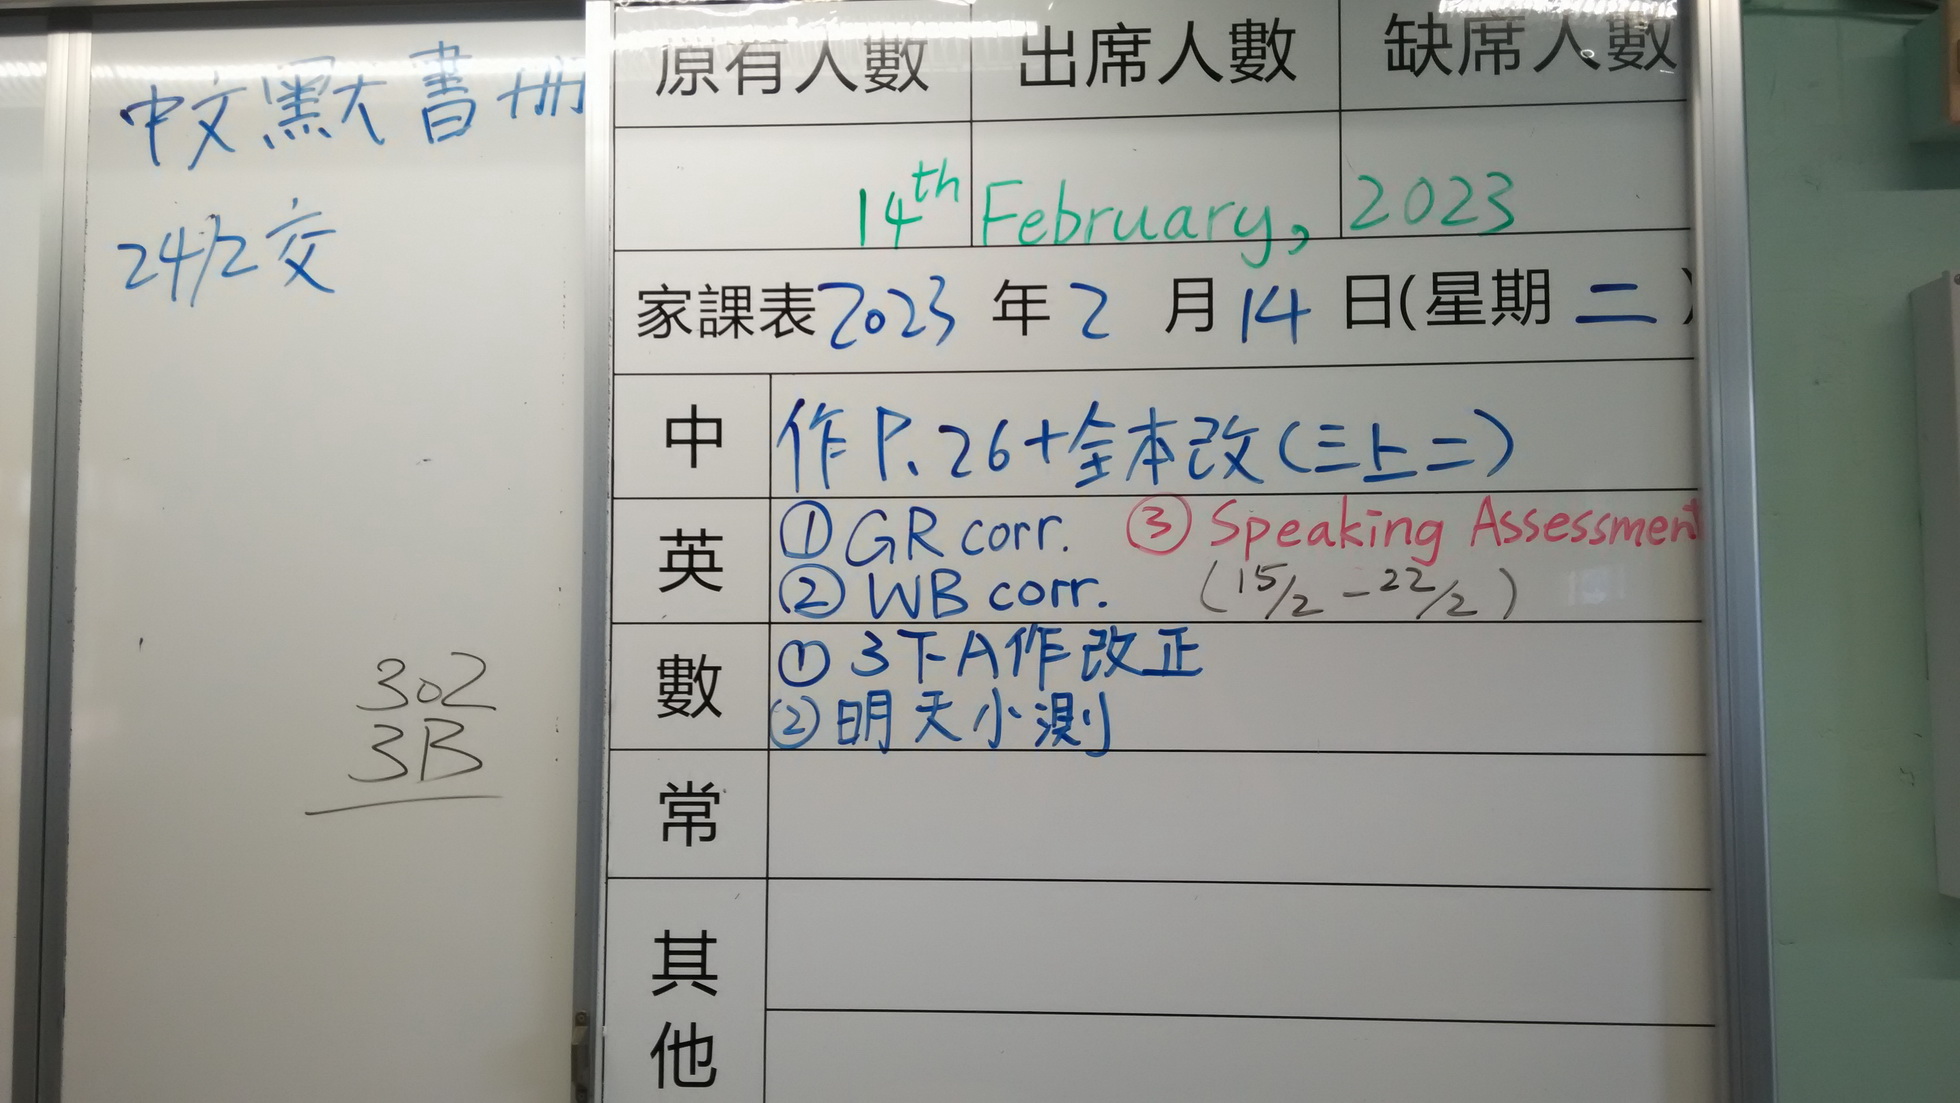 中文默書冊
24/2交
302
3B
原有人數 出席人數 缺席人數
14th February, 2023
家課表2023年2月14日(星期二)
中 作P.26+全本改(三上二)
英 ①GR corr. ③Speaking Assessment
②WB corr. (15/2-22/2)
數 ①3下A作改正
②明天小測
常
其他